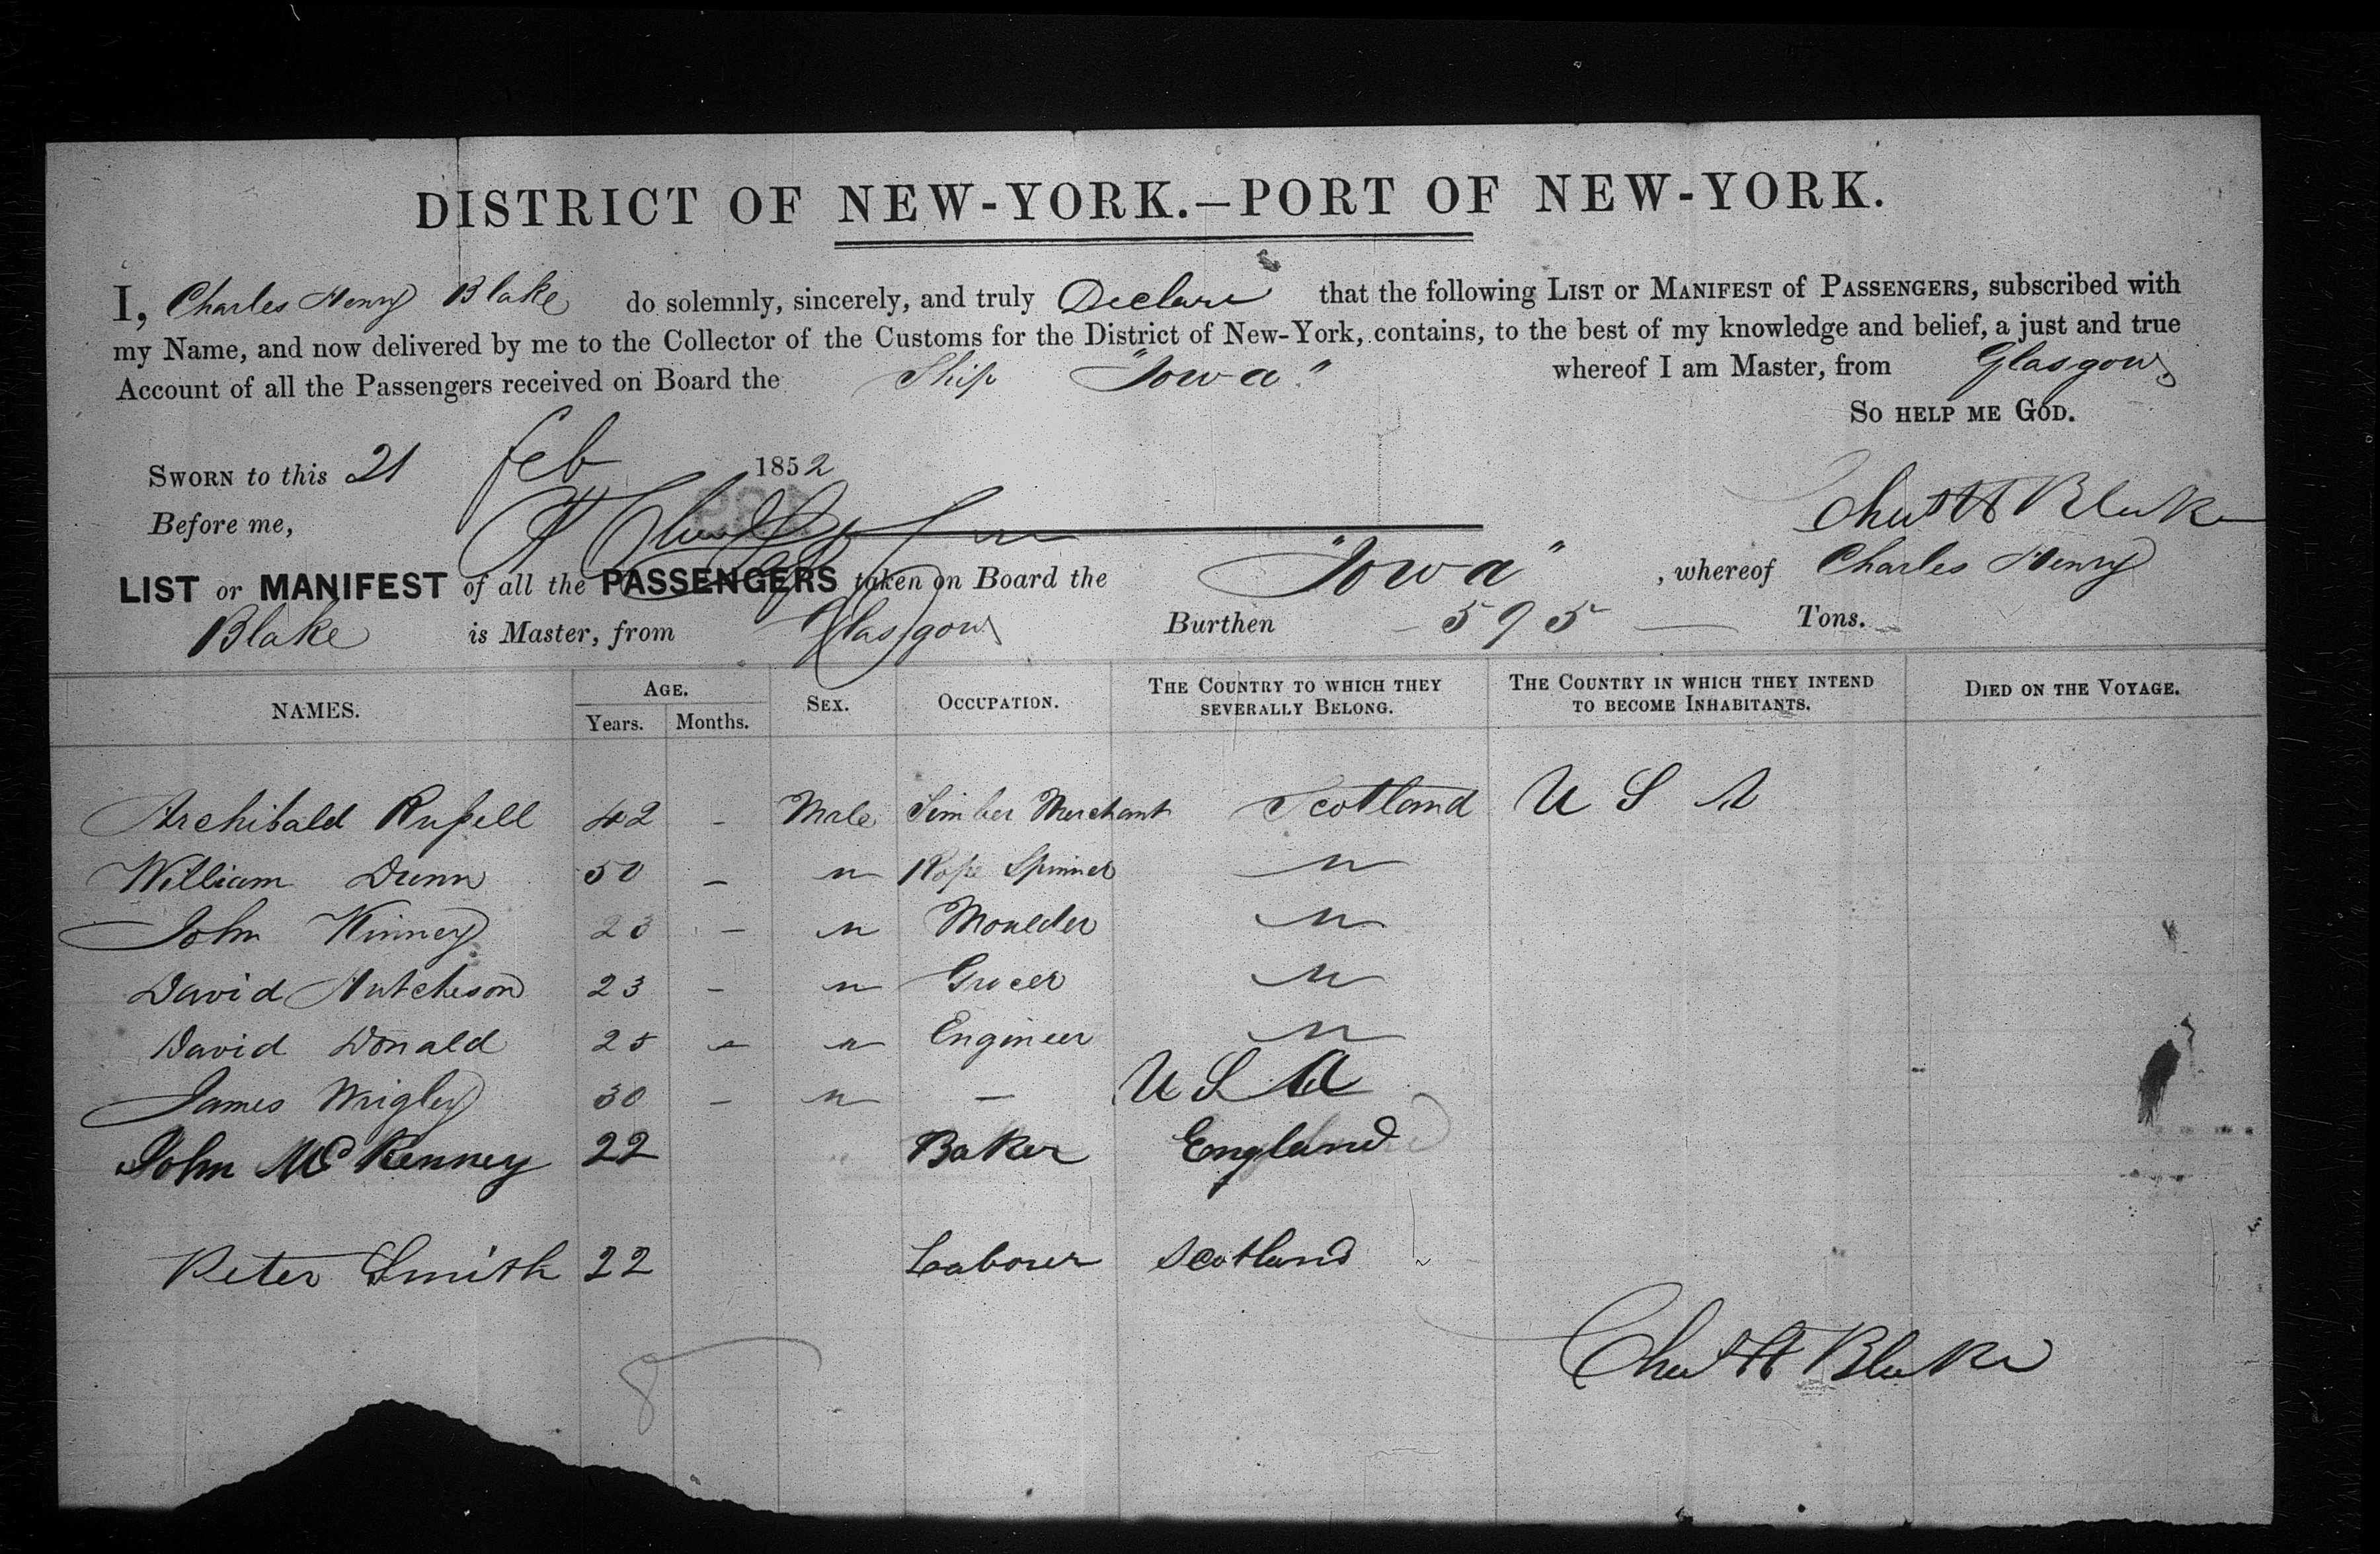 DISTRICT OF NEW-YORK.—PORT OF NEW-YORK.
I, Charles Henry Blake do solemnly, sincerely, and truly Declare that the following List or Manifest of Passengers, subscribed with
my Name, and now delivered by me to the Collector of the Customs for the District of New-York, contains, to the best of my knowledge and belief, a just and true
Account of all the Passengers received on Board the Ship "Iowa" whereof I am Master, from Glasgow
So help me God.
Sworn to this 21 Feb 1852
Before me,
Chas H Blake
LIST or MANIFEST of all the PASSENGERS taken on Board the "Iowa", whereof Charles Henry
Blake is Master, from Glasgow Burthen - 595 — Tons.
NAMES. Age. Years. Months. Sex. Occupation. The Country to which they severally Belong. The Country in which they intend to become Inhabitants. Died on the Voyage.
Archibald Rußell 42 - Male Timber Merchant Scotland U S A
William Dunn 50 - " Rope Spinner "
John Kinney 23 - " Moulder "
David Hutcheson 23 - " Grocer "
David Donald 25 - " Engineer "
James Migley 30 - " - U S A
John McKenney 22 Baker England
Peter Smith 22 Labourer Scotland
8
Chas H Blake